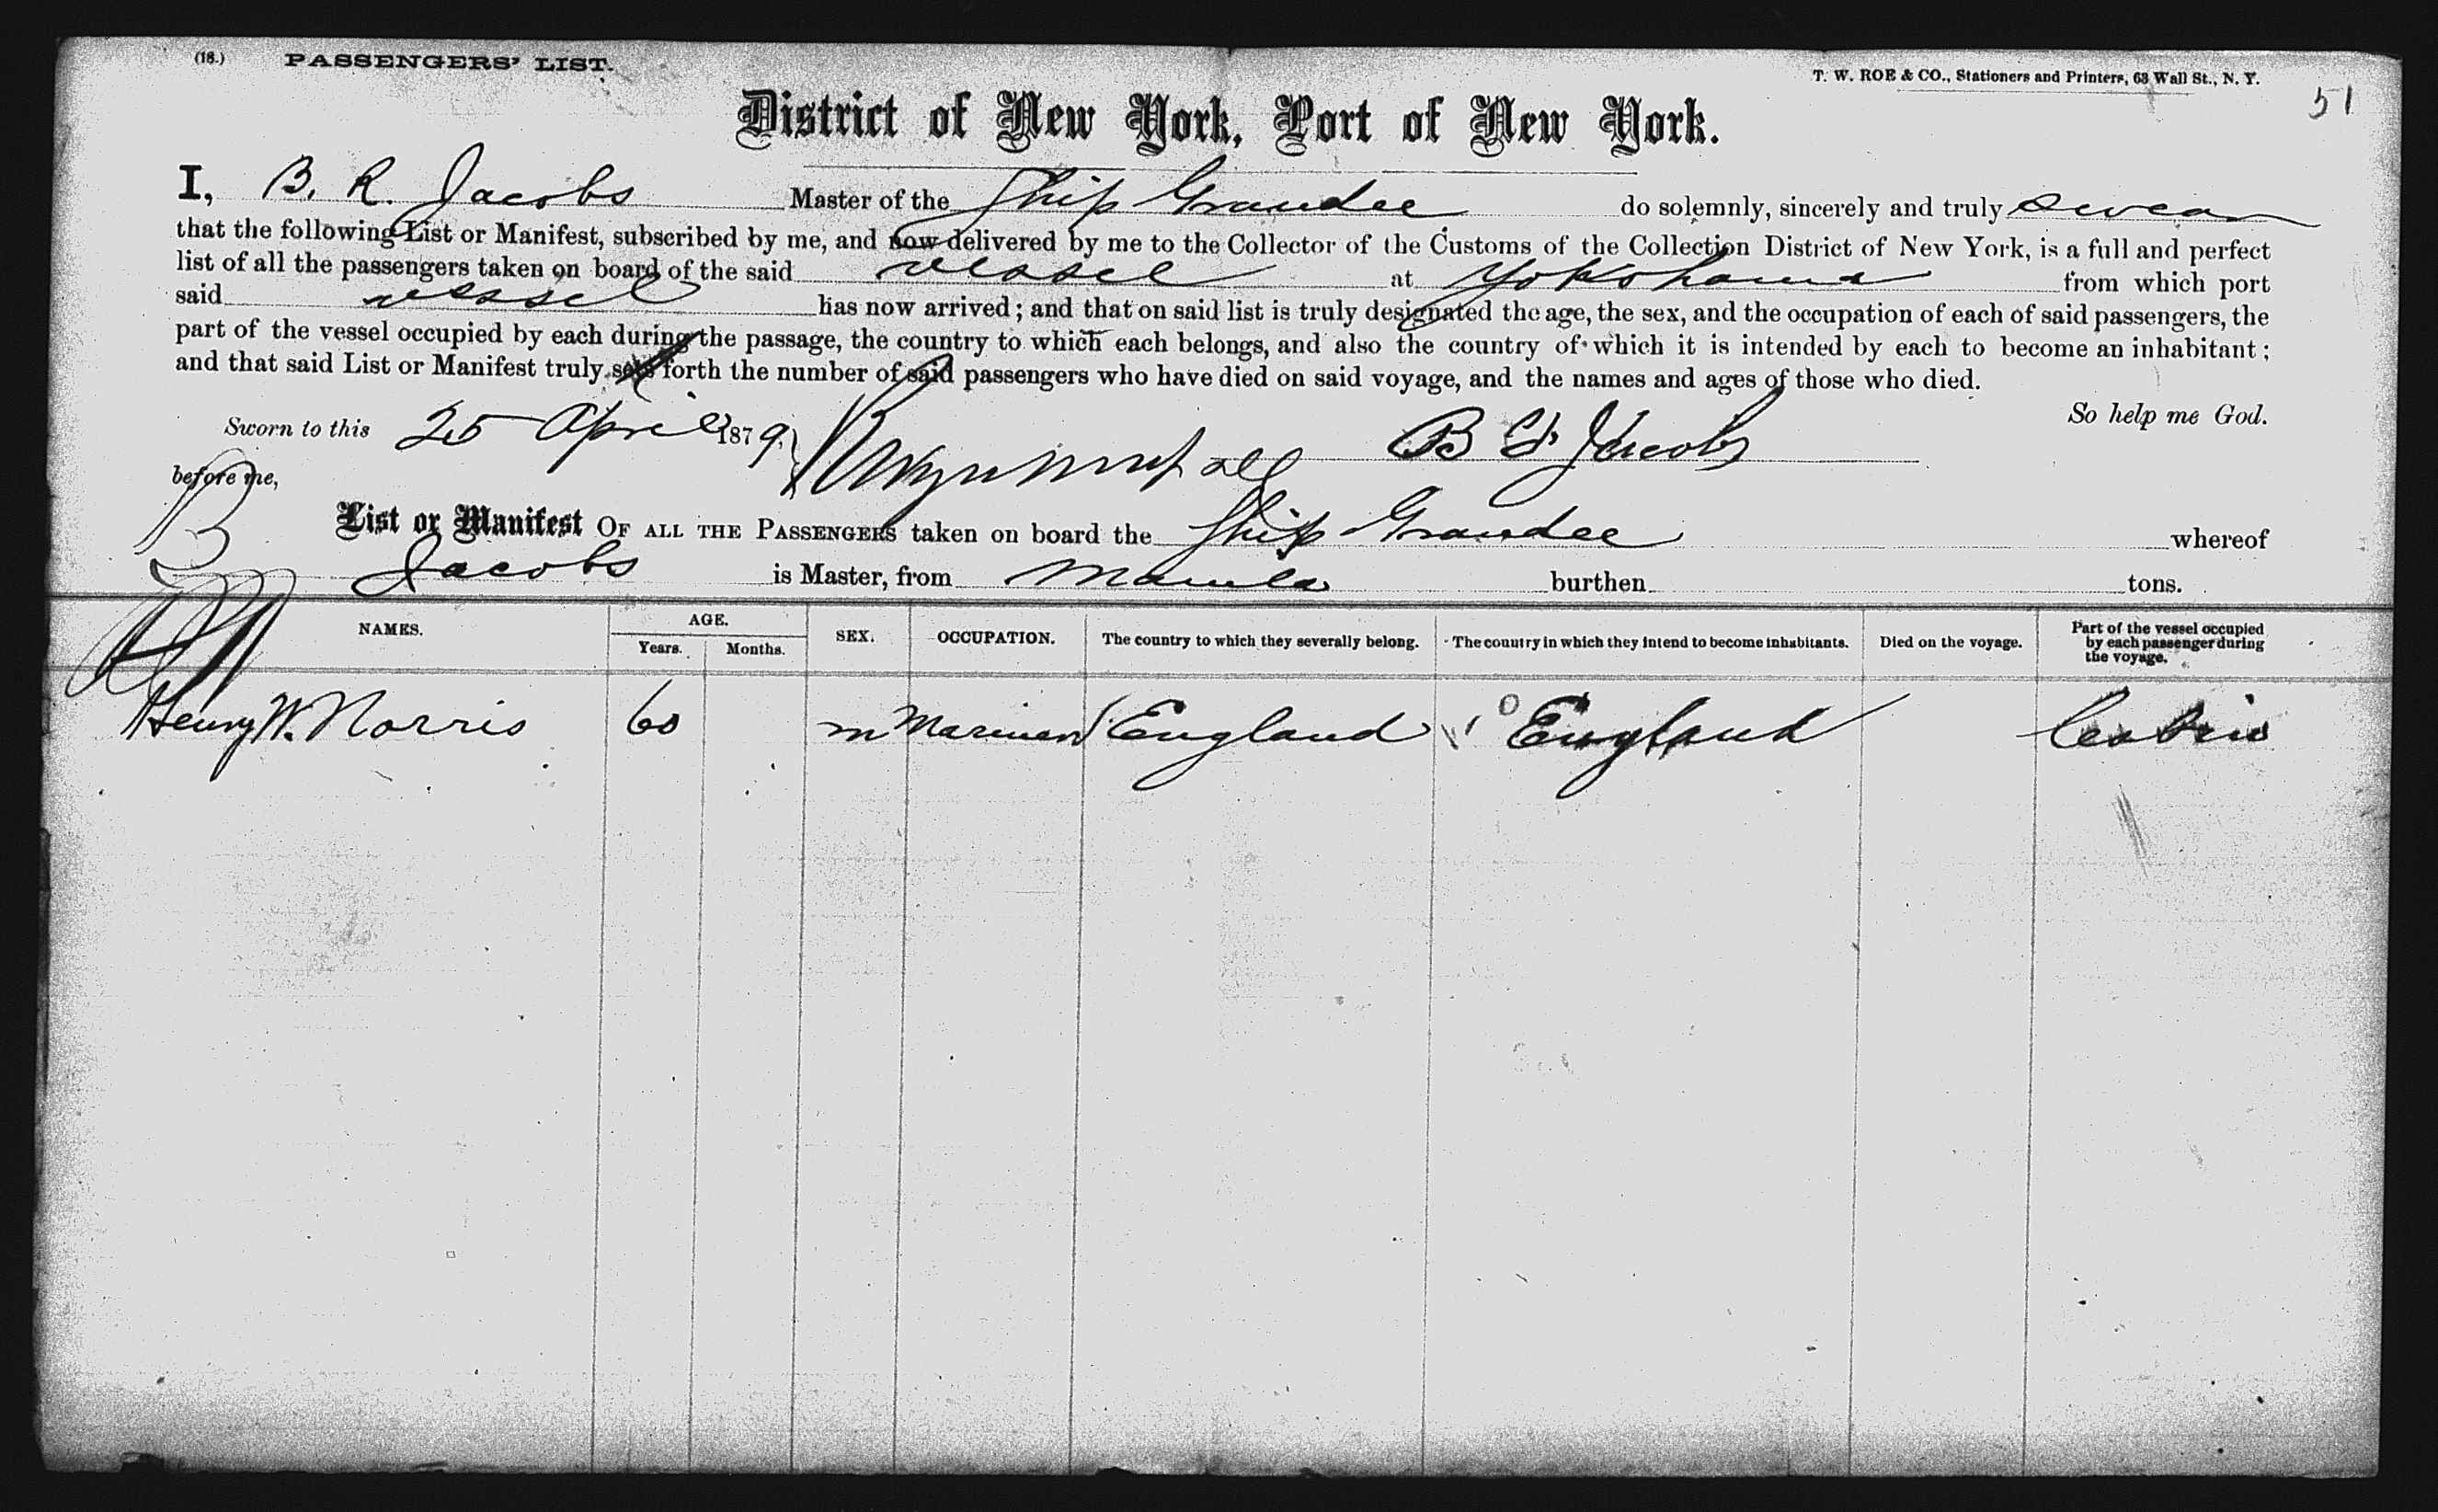 (18.) PASSENGERS' LIST.
T. W. ROE & CO., Stationers and Printers, 63 Wall St., N. Y.
51
District of New York, Port of New York.
I, B. R. Jacobs Master of the Ship Grandee do solemnly, sincerely and truly swear
that the following List or Manifest, subscribed by me, and now delivered by me to the Collector of the Customs of the Collection District of New York, is a full and perfect
list of all the passengers taken on board of the said vessel at Yokohama from which port
said vessel has now arrived; and that on said list is truly designated the age, the sex, and the occupation of each of said passengers, the
part of the vessel occupied by each during the passage, the country to which each belongs, and also the country of which it is intended by each to become an inhabitant;
and that said List or Manifest truly sets forth the number of said passengers who have died on said voyage, and the names and ages of those who died.
So help me God.
Sworn to this 25 April 1879. B Jacobs
before me,
List or Manifest OF ALL THE PASSENGERS taken on board the Ship Grandee whereof
B Jacobs is Master, from Manila burthen tons.
NAMES. AGE. Years. Months. SEX. OCCUPATION. The country to which they severally belong. The country in which they intend to become inhabitants. Died on the voyage. Part of the vessel occupied by each passenger during the voyage.
Henry W. Norris 60 m Mariner England England Cabin